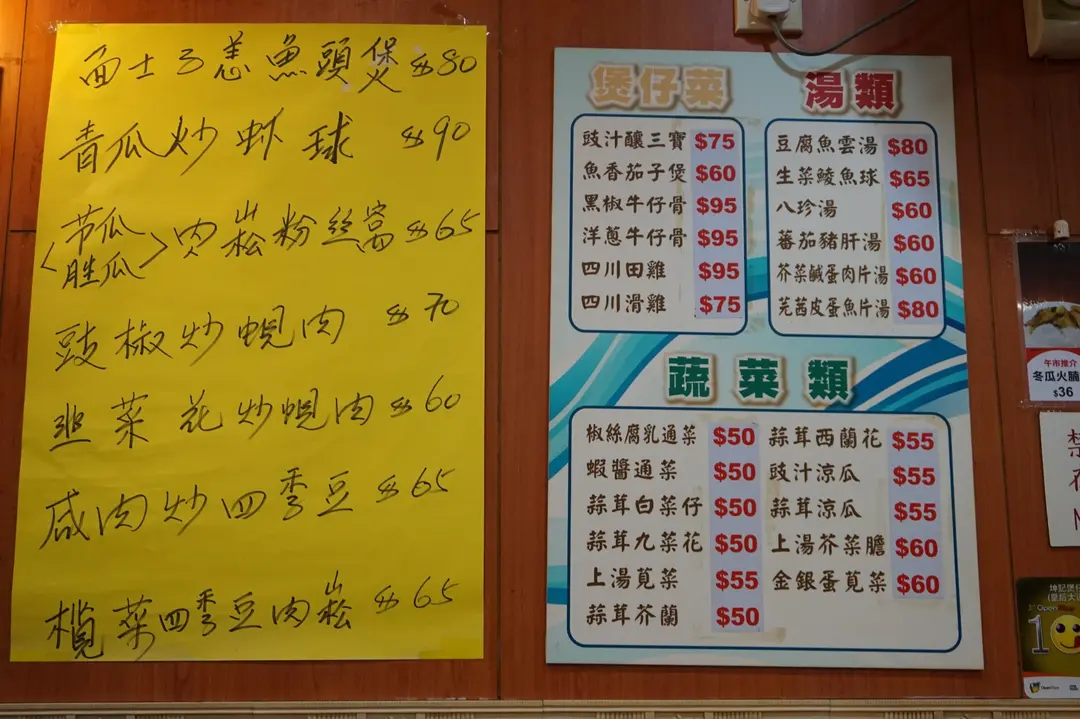 面士子羗魚頭煲 $80
青瓜炒虾球 $90
〈节瓜
胜瓜〉肉崧粉丝窝 $65
豉椒炒蚬肉 $70
韮菜花炒蚬肉 $60
咸肉炒四季豆 $65
榄菜四季豆肉崧 $65
煲仔菜
豉汁釀三寶 $75
魚香茄子煲 $60
黑椒牛仔骨 $95
洋蔥牛仔骨 $95
四川田雞 $95
四川滑雞 $75
湯類
豆腐魚雲湯 $80
生菜鯪魚球 $65
八珍湯 $60
蕃茄豬肝湯 $60
芥菜鹹蛋肉片湯 $60
芫茜皮蛋魚片湯 $80
蔬菜類
椒絲腐乳通菜 $50
蝦醬通菜 $50
蒜茸白菜仔 $50
蒜茸九菜花 $50
上湯莧菜 $55
蒜茸芥蘭 $50
蒜茸西蘭花 $55
豉汁涼瓜 $55
蒜茸涼瓜 $55
上湯芥菜膽 $60
金銀蛋莧菜 $60
午市推介
冬瓜火腩
$36
禁
坤記煲仔
(皇后大道
OpenRice
10